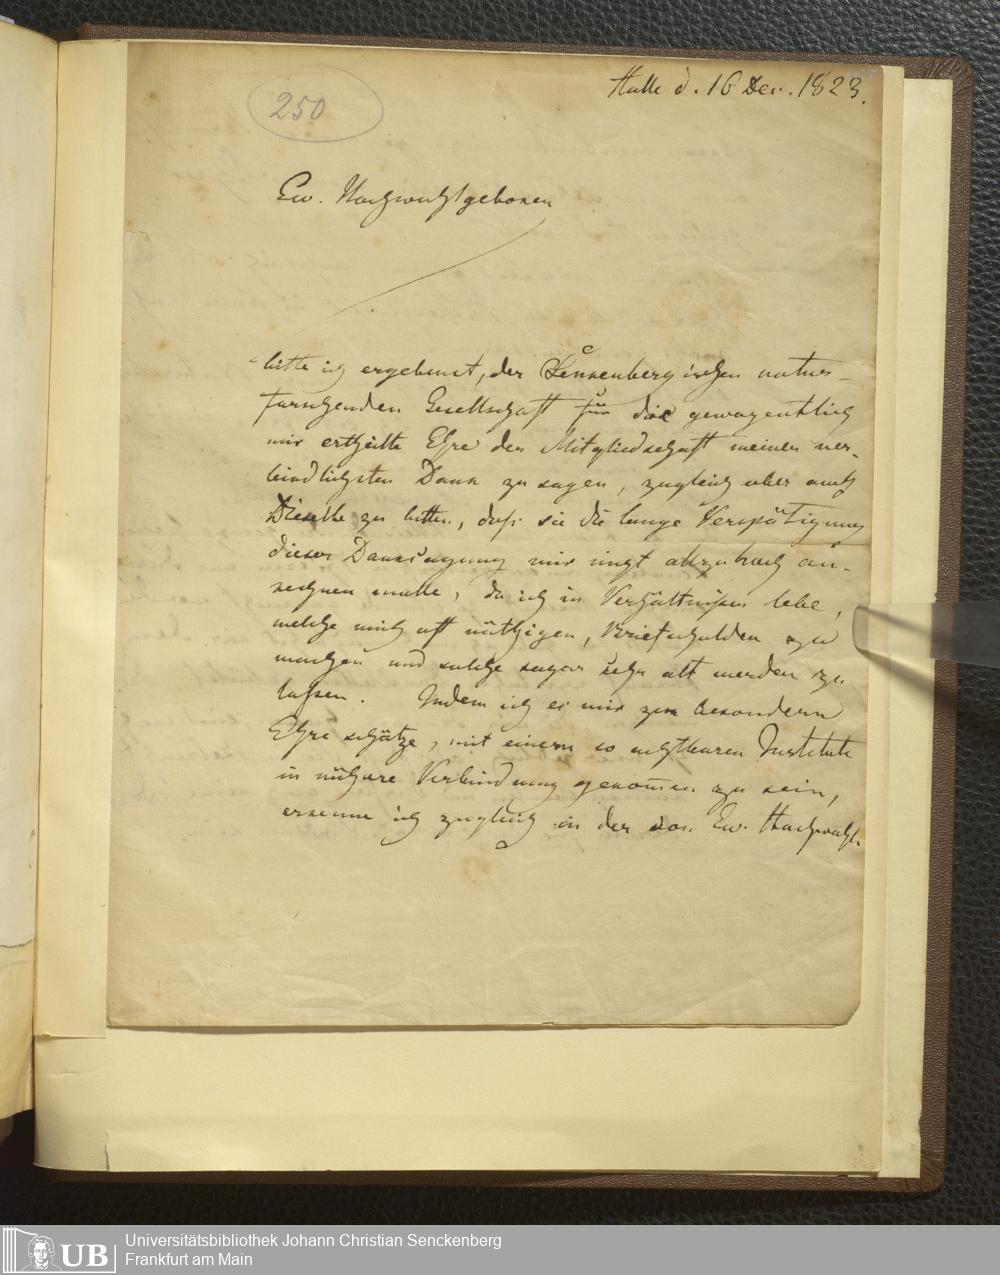 Halle d. 16 Dec. 1823.
250
Ew. Hochwohlgeboren
bitte ich ergebenst, der Senkenbergischen natur-
forschenden Gesellschaft für die gewogentlich
mir ertheilte Ehre der Mitgliedschaft meinen ver-
bindlichsten Dank zu sagen, zugleich aber auch
Dieselbe zu bitten, daß sie die lange Verspätigung
dieser Danksagung mir nicht allzu hoch an-
rechnen wolle, da ich in Verhältnißen lebe,
welche mich oft nöthigen, Briefschulden zu
machen und solche sogar sehr alt werden zu
laßen. Indem ich es mir zur besondern
Ehre schätze, mit einem so achtbaren Institute
in nähere Verbindung gekommen zu sein,
erkenne ich zugleich in der von Ew. Hochwohl-
UB
Universitätsbibliothek Johann Christian Senckenberg
Frankfurt am Main